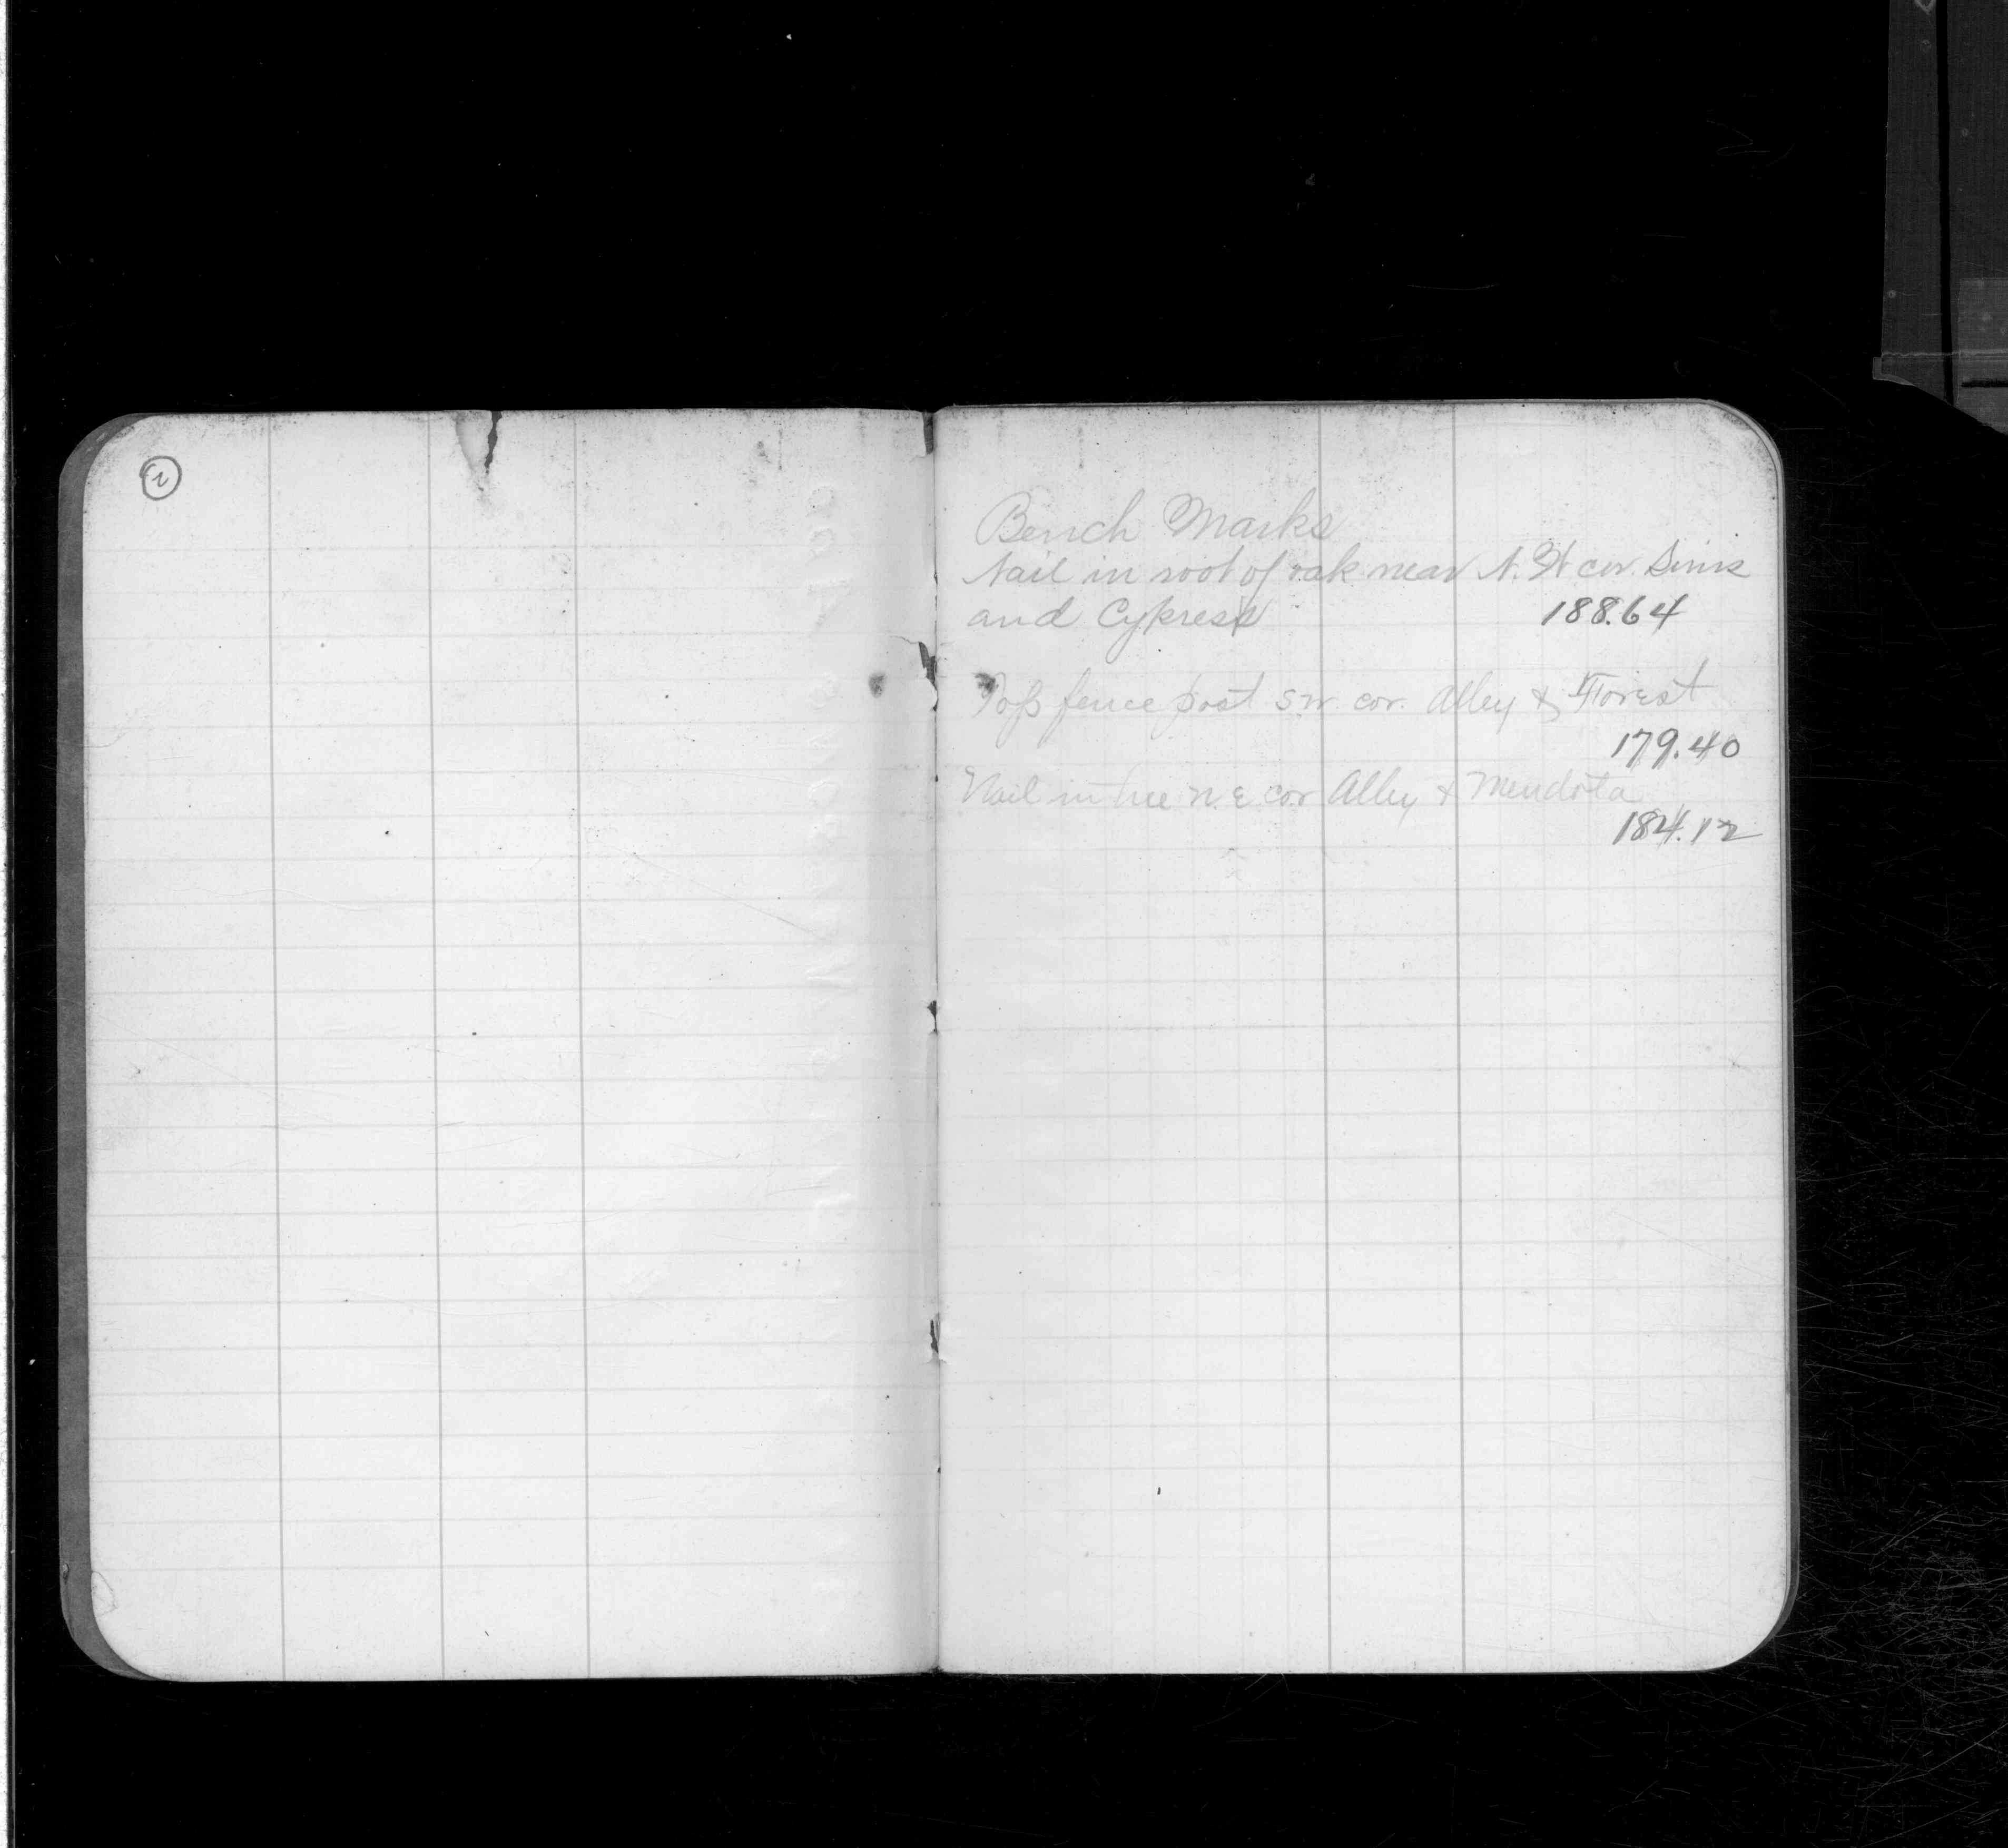 2
Bench Marks
Nail in root of oak near N. W cor. Sims
and Cypress 188.64
Top fence post S.W. cor. Alley & Forest
179.40
Nail in tree N.E. cor Alley & Mendota
184.12